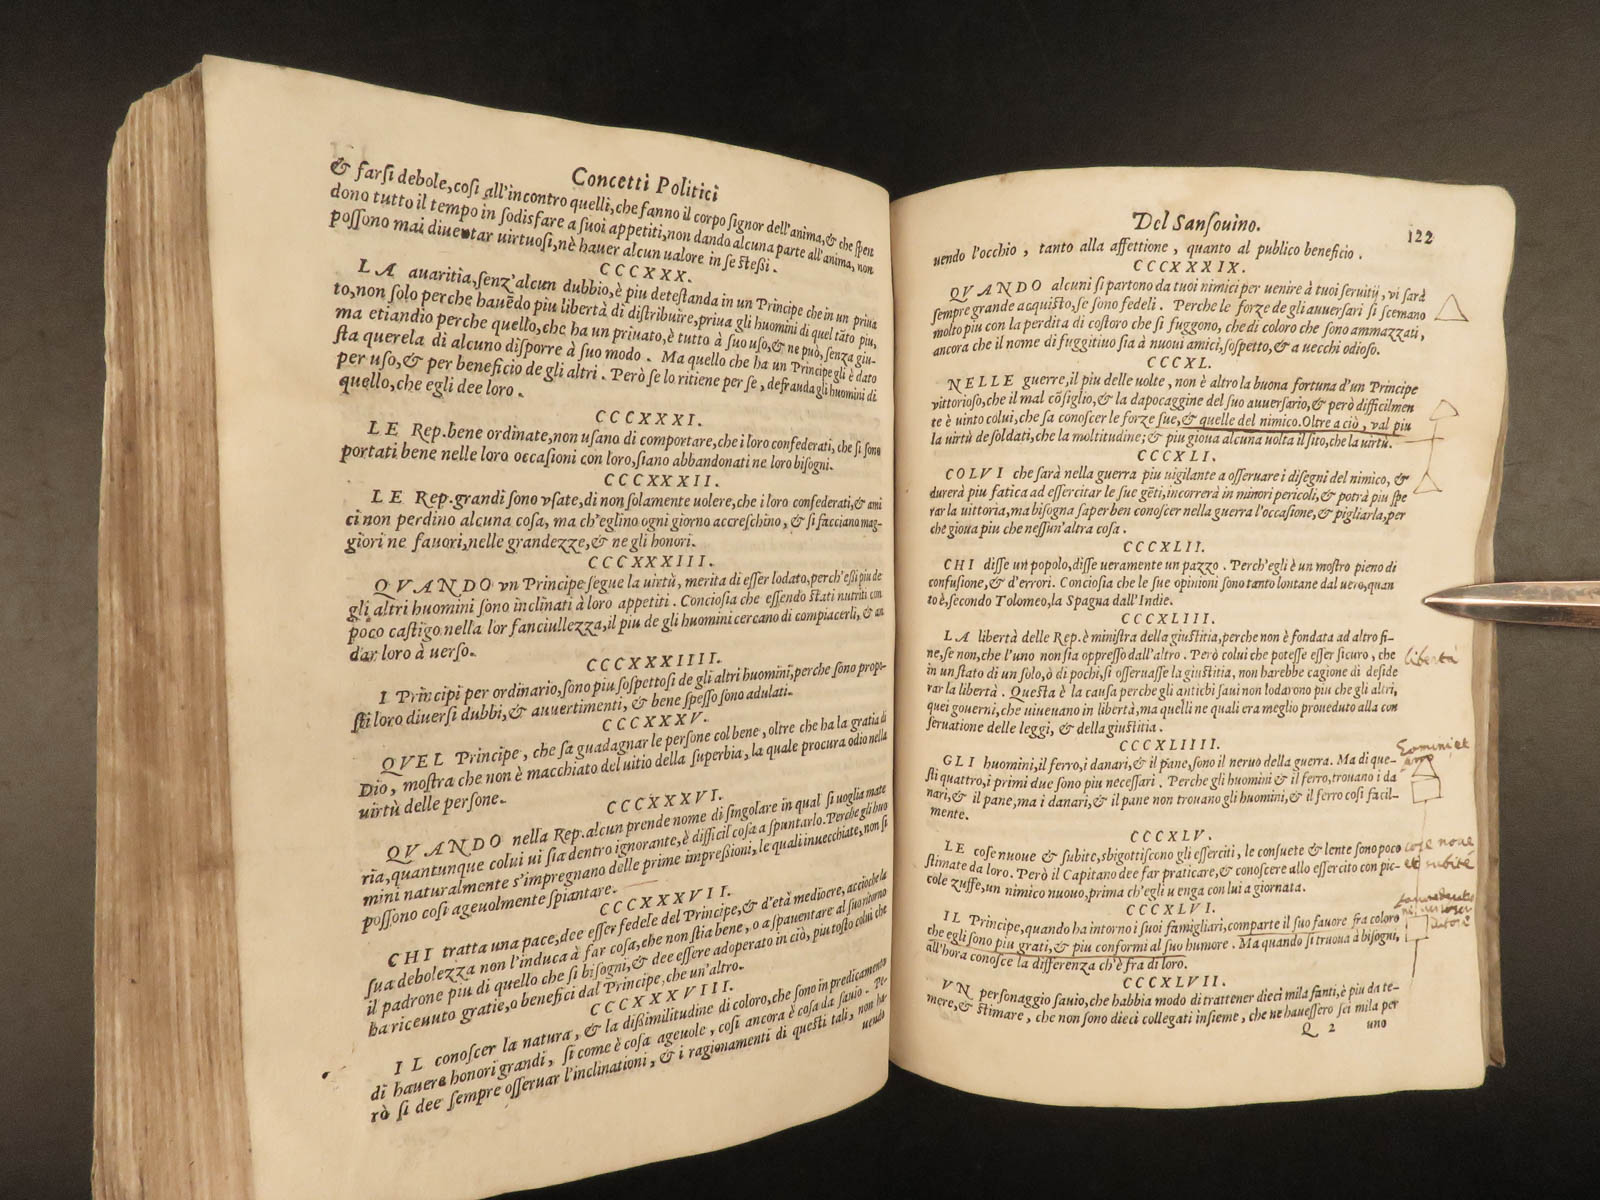 Concetti Politici
& farſi debole, coſi all'incontro quelli, che fanno il corpo ſignor dell'anima, & che ſpen
dono tutto il tempo in ſodisfare a ſuoi appetiti, non dando alcuna parte all'anima, non
poſſono mai diuentar uirtuoſi, nè hauer alcun ualore in ſe ſteſſi.
CCCXXX.
LA auaritia, ſenz'alcun dubbio, è piu deteſtanda in un Principe che in un priua
to, non ſolo perche hauēdo piu libertà di diſtribuire, priua gli huomini di quel tāto piu,
ma etiandio perche quello, che ha un priuato, è tutto à ſuo uſo, & ne può, ſenza giu-
ſta querela di alcuno diſporre à ſuo modo. Ma quello che ha un Principe gli è dato
per uſo, & per beneficio de gli altri. Però ſe lo ritiene per ſe, defrauda gli huomini di
quello, che egli dee loro.
CCCXXXI.
LE Rep. bene ordinate, non uſano di comportare, che i loro confederati, che ſi ſono
portati bene nelle loro occaſioni con loro, ſiano abbandonati ne loro biſogni.
CCCXXXII.
LE Rep. grandi ſono vſate, di non ſolamente uolere, che i loro confederati, & ami
ci non perdino alcuna coſa, ma ch'eglino ogni giorno accreſchino, & ſi facciano mag-
giori ne fauori, nelle grandezze, & ne gli honori.
CCCXXXIII.
QVANDO vn Principe ſegue la uirtù, merita di eſſer lodato, perch'eſſi piu de
gli altri huomini ſono inclinati à loro appetiti. Concioſia che eſſendo ſtati nutriti con
poco caſtigo nella lor fanciullezza, il piu de gli huomini cercano di compiacerli, & an
dar loro à uerſo.
CCCXXXIIII.
I Principi per ordinario, ſono piu ſoſpettoſi de gli altri huomini, perche ſono propo-
ſti loro diuerſi dubbi, & auuertimenti, & bene ſpeſſo ſono adulati.
CCCXXXV.
QVEL Principe, che ſa guadagnar le perſone col bene, oltre che ha la gratia di
Dio, moſtra che non è macchiato del uitio della ſuperbia, la quale procura odio nella
uirtù delle perſone.
CCCXXXVI.
QVANDO nella Rep. alcun prende nome di ſingolare in qual ſi uoglia mate
ria, quantunque colui ui ſia dentro ignorante, è difficil coſa a ſpuntarlo. Perche gli huo
mini naturalmente s'impregnano delle prime impreſſioni, le quali inuecchiate, non ſi
poſſono coſi ageuolmente ſpiantare.
CCCXXXVII.
CHI tratta una pace, dee eſſer fedele del Principe, & d'età mediocre, accioche la
ſua debolezza non l'induca à far coſa, che non ſtia bene, o a ſpauentare al ſuo ritorno
il padrone piu di quello che ſi biſogni, & dee eſſere adoperato in ciò, piu toſto colui che
ha riceuuto gratie, o benefici dal Principe, che un'altro.
CCCXXXVIII.
IL conoſcer la natura, & la diſſimilitudine di coloro, che ſono in predicamento
di hauere honori grandi, ſi come è coſa ageuole, coſi ancora è coſa da ſauio. Pe-
rò ſi dee ſempre oſſeruar l'inclinationi, & i ragionamenti di queſti tali, non ha-
uendo
Del Sanſouino.
122
uendo l'occhio, tanto alla affettione, quanto al publico beneficio.
CCCXXXIX.
QVANDO alcuni ſi partono da tuoi nimici per uenire à tuoi ſeruitij, vi ſarà
ſempre grande acquiſto, ſe ſono fedeli. Perche le forze de gli auuerſari ſi ſcemano
molto piu con la perdita di coſtoro che ſi fuggono, che di coloro che ſono ammazzati,
ancora che il nome di fuggitiuo ſia à nuoui amici, ſoſpetto, & a uecchi odioſo.
CCCXL.
NELLE guerre, il piu delle uolte, non è altro la buona fortuna d'un Principe
vittorioſo, che il mal cōſiglio, & la dapocaggine del ſuo auuerſario, & però difficilmen
te è uinto colui, che ſa conoſcer le forze ſue, & quelle del nimico. Oltre a ciò, val piu
la uirtù de ſoldati, che la moltitudine; & piu gioua alcuna uolta il ſito, che la uirtù.
CCCXLI.
COLVI che ſarà nella guerra piu uigilante a oſſeruare i diſegni del nimico, &
durerà piu fatica ad eſſercitar le ſue gēti, incorrerà in minori pericoli, & potrà piu ſpe
rar la uittoria, ma biſogna ſaper ben conoſcer nella guerra l'occaſione, & pigliarla, per
che gioua piu che neſſun'altra coſa.
CCCXLII.
CHI diſſe un popolo, diſſe ueramente un pazzo. Perch'egli è un moſtro pieno di
confuſione, & d'errori. Concioſia che le ſue opinioni ſono tanto lontane dal uero, quan
to è, ſecondo Tolomeo, la Spagna dall'Indie.
CCCXLIII.
LA libertà delle Rep. è miniſtra della giuſtitia, perche non è fondata ad altro fi-
ne, ſe non, che l'uno non ſia oppreſſo dall'altro. Però colui che poteſſe eſſer ſicuro, che
in un ſtato di un ſolo, ò di pochi, ſi oſſeruaſſe la giuſtitia, non harebbe cagione di deſide
rar la libertà. Queſta è la cauſa perche gli antichi ſaui non lodarono piu che gli altri,
quei gouerni, che uiueuano in libertà, ma quelli ne quali era meglio proueduto alla con
ſeruatione delle leggi, & della giuſtitia.
libertà
CCCXLIIII.
GLI huomini, il ferro, i danari, & il pane, ſono il neruo della guerra. Ma di que-
ſti quattro, i primi due ſono piu neceſſari. Perche gli huomini & il ferro, trouano i da
nari, & il pane, ma i danari, & il pane non trouano gli huomini, & il ferro coſi facil-
mente.
CCCXLV.
LE coſe nuoue & ſubite, sbigottiſcono gli eſſerciti, le conſuete & lente ſono poco
ſtimate da loro. Però il Capitano dee far praticare, & conoſcere allo eſſercito con pic-
cole zuffe, un nimico nuouo, prima ch'egli uenga con lui a giornata.
coſe noue
et ſubite
CCCXLVI.
IL Principe, quando ha intorno i ſuoi famigliari, comparte il ſuo fauore fra coloro
che egli ſono piu grati, & piu conformi al ſuo humore. Ma quando ſi truoua à biſogni,
all'hora conoſce la differenza ch'è fra di loro.
CCCXLVII.
VN perſonaggio ſauio, che habbia modo di trattener dieci mila fanti, è piu da te-
mere, & ſtimare, che non ſono dieci collegati inſieme, che ne haueſſero ſei mila per
Q 2 uno